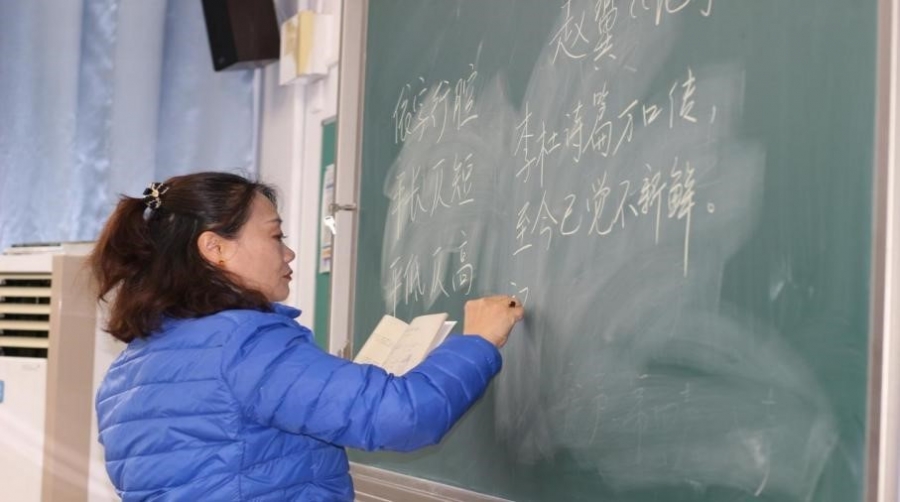 赵翼《论诗
依字行腔
平长仄短
平低仄高
李杜诗篇万口传，
至今已觉不新鲜。